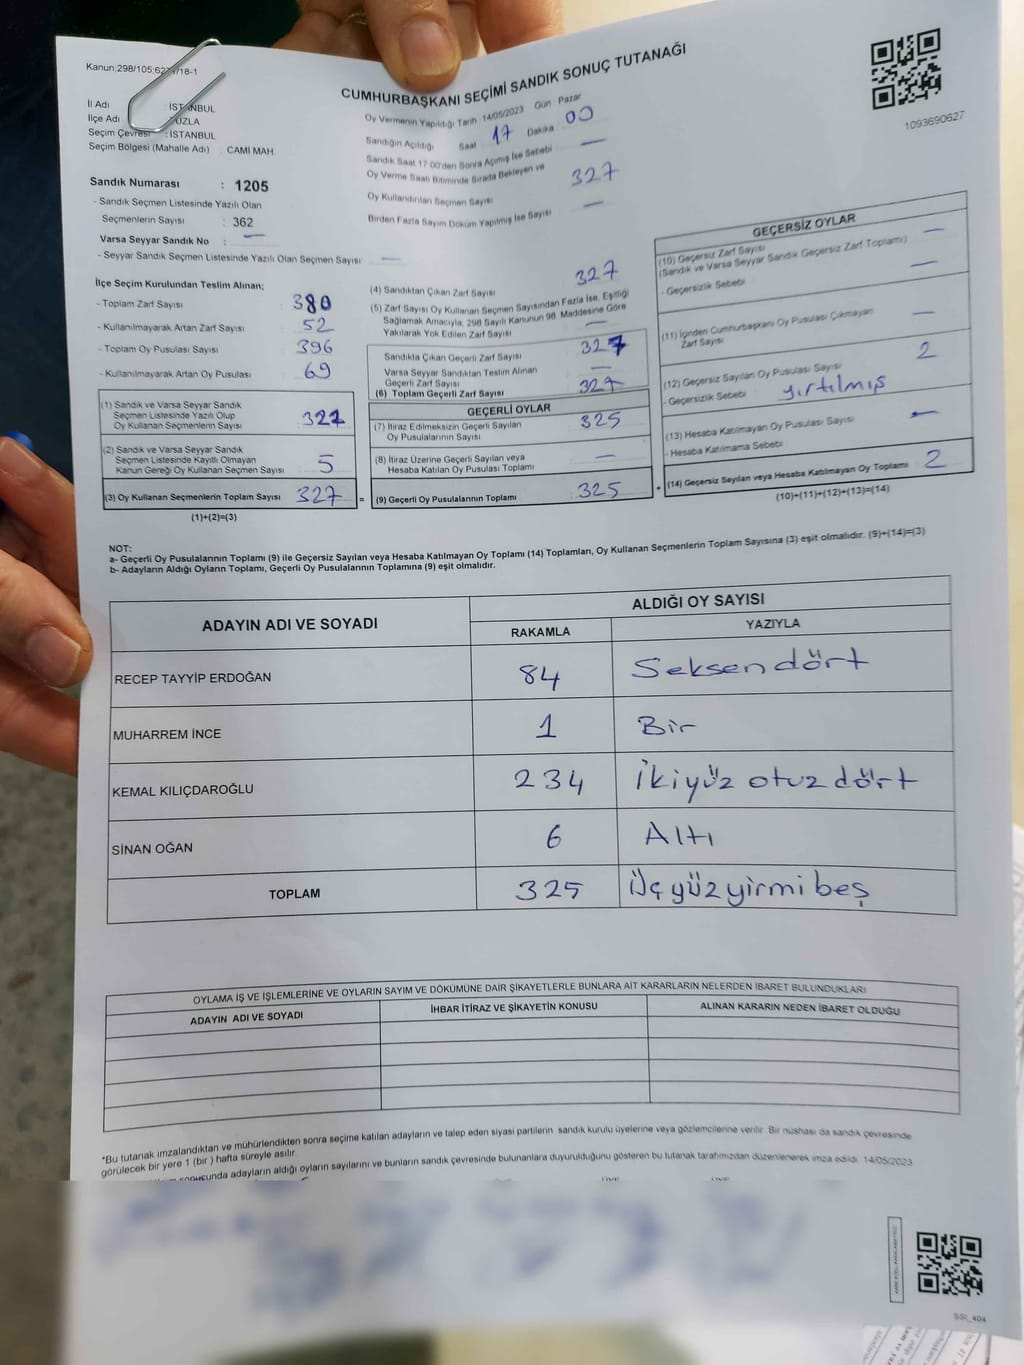 Kanun:298/105;62 /18-1
CUMHURBAŞKANI SEÇİMİ SANDIK SONUÇ TUTANAĞI
1093690627
İl Adı : İSTANBUL
İlçe Adı UZLA
Seçim Çevresi : İSTANBUL
Seçim Bölgesi (Mahalle Adı) CAMİ MAH.
Sandık Numarası : 1205
- Sandık Seçmen Listesinde Yazılı Olan
Seçmenlerin Sayısı : 362
Varsa Seyyar Sandık No : —
- Seyyar Sandık Seçmen Listesinde Yazılı Olan Seçmen Sayısı : —
Oy Vermenin Yapıldığı Tarih 14/05/2023 Gün : Pazar
Sandığın Açıldığı Saat 17 Dakika 00
Sandık Saat 17.00'den Sonra Açılmış İse Sebebi —
Oy Verme Saati Bitiminde Sırada Bekleyen ve
Oy Kullandırılan Seçmen Sayısı 327
Birden Fazla Sayım Döküm Yapılmış İse Sayısı —
İlçe Seçim Kurulundan Teslim Alınan;
- Toplam Zarf Sayısı : 380
- Kullanılmayarak Artan Zarf Sayısı : 52
- Toplam Oy Pusulası Sayısı : 396
- Kullanılmayarak Artan Oy Pusulası : 69
(1) Sandık ve Varsa Seyyar Sandık
Seçmen Listesinde Yazılı Olup
Oy Kullanan Seçmenlerin Sayısı : 322
(2) Sandık ve Varsa Seyyar Sandık
Seçmen Listesinde Kayıtlı Olmayan
Kanun Gereği Oy Kullanan Seçmen Sayısı : 5
(3) Oy Kullanan Seçmenlerin Toplam Sayısı : 327
(1)+(2)=(3)
(4) Sandıktan Çıkan Zarf Sayısı : 327
(5) Zarf Sayısı Oy Kullanan Seçmen Sayısından Fazla İse, Eşitliği
Sağlamak Amacıyla, 298 Sayılı Kanunun 98. Maddesine Göre
Yakılarak Yok Edilen Zarf Sayısı : —
Sandıkta Çıkan Geçerli Zarf Sayısı : 327
Varsa Seyyar Sandıktan Teslim Alınan
Geçerli Zarf Sayısı : —
(6) Toplam Geçerli Zarf Sayısı : 327
GEÇERLİ OYLAR
(7) İtiraz Edilmeksizin Geçerli Sayılan
Oy Pusulalarının Sayısı : 325
(8) İtiraz Üzerine Geçerli Sayılan veya
Hesaba Katılan Oy Pusulası Toplamı : —
= (9) Geçerli Oy Pusulalarının Toplamı : 325
GEÇERSİZ OYLAR
(10) Geçersiz Zarf Sayısı : —
(Sandık ve Varsa Seyyar Sandık Geçersiz Zarf Toplamı)
- Geçersizlik Sebebi : —
(11) İçinden Cumhurbaşkanı Oy Pusulası Çıkmayan
Zarf Sayısı : —
(12) Geçersiz Sayılan Oy Pusulası Sayısı : 2
- Geçersizlik Sebebi : yırtılmış
(13) Hesaba Katılmayan Oy Pusulası Sayısı : —
- Hesaba Katılmama Sebebi :
+ (14) Geçersiz Sayılan veya Hesaba Katılmayan Oy Toplamı : 2
(10)+(11)+(12)+(13)=(14)
NOT:
a- Geçerli Oy Pusulalarının Toplamı (9) ile Geçersiz Sayılan veya Hesaba Katılmayan Oy Toplamı (14) Toplamları, Oy Kullanan Seçmenlerin Toplam Sayısına (3) eşit olmalıdır. (9)+(14)=(3)
b- Adayların Aldığı Oyların Toplamı, Geçerli Oy Pusulalarının Toplamına (9) eşit olmalıdır.
ADAYIN ADI VE SOYADI ALDIĞI OY SAYISI
RAKAMLA YAZIYLA
RECEP TAYYİP ERDOĞAN 84 Seksendört
MUHARREM İNCE 1 Bir
KEMAL KILIÇDAROĞLU 234 ikiyüz otuz dört
SİNAN OĞAN 6 Altı
TOPLAM 325 Üçyüzyirmibeş
OYLAMA İŞ VE İŞLEMLERİNE VE OYLARIN SAYIM VE DÖKÜMÜNE DAİR ŞİKAYETLERLE BUNLARA AİT KARARLARIN NELERDEN İBARET BULUNDUKLARI
ADAYIN ADI VE SOYADI İHBAR İTİRAZ VE ŞİKAYETİN KONUSU ALINAN KARARIN NEDEN İBARET OLDUĞU
*Bu tutanak imzalandıktan ve mühürlendikten sonra seçime katılan adayların ve talep eden siyasi partilerin sandık kurulu üyelerine veya gözlemcilerine verilir. Bir nüshası da sandık çevresinde
görülecek bir yere 1 (bir ) hafta süreyle asılır.
sonucunda adayların aldığı oyların sayılarını ve bunların sandık çevresinde bulunanlara duyurulduğunu gösteren bu tutanak tarafımızdan düzenlenerek imza edildi. 14/05/2023
SSI_404